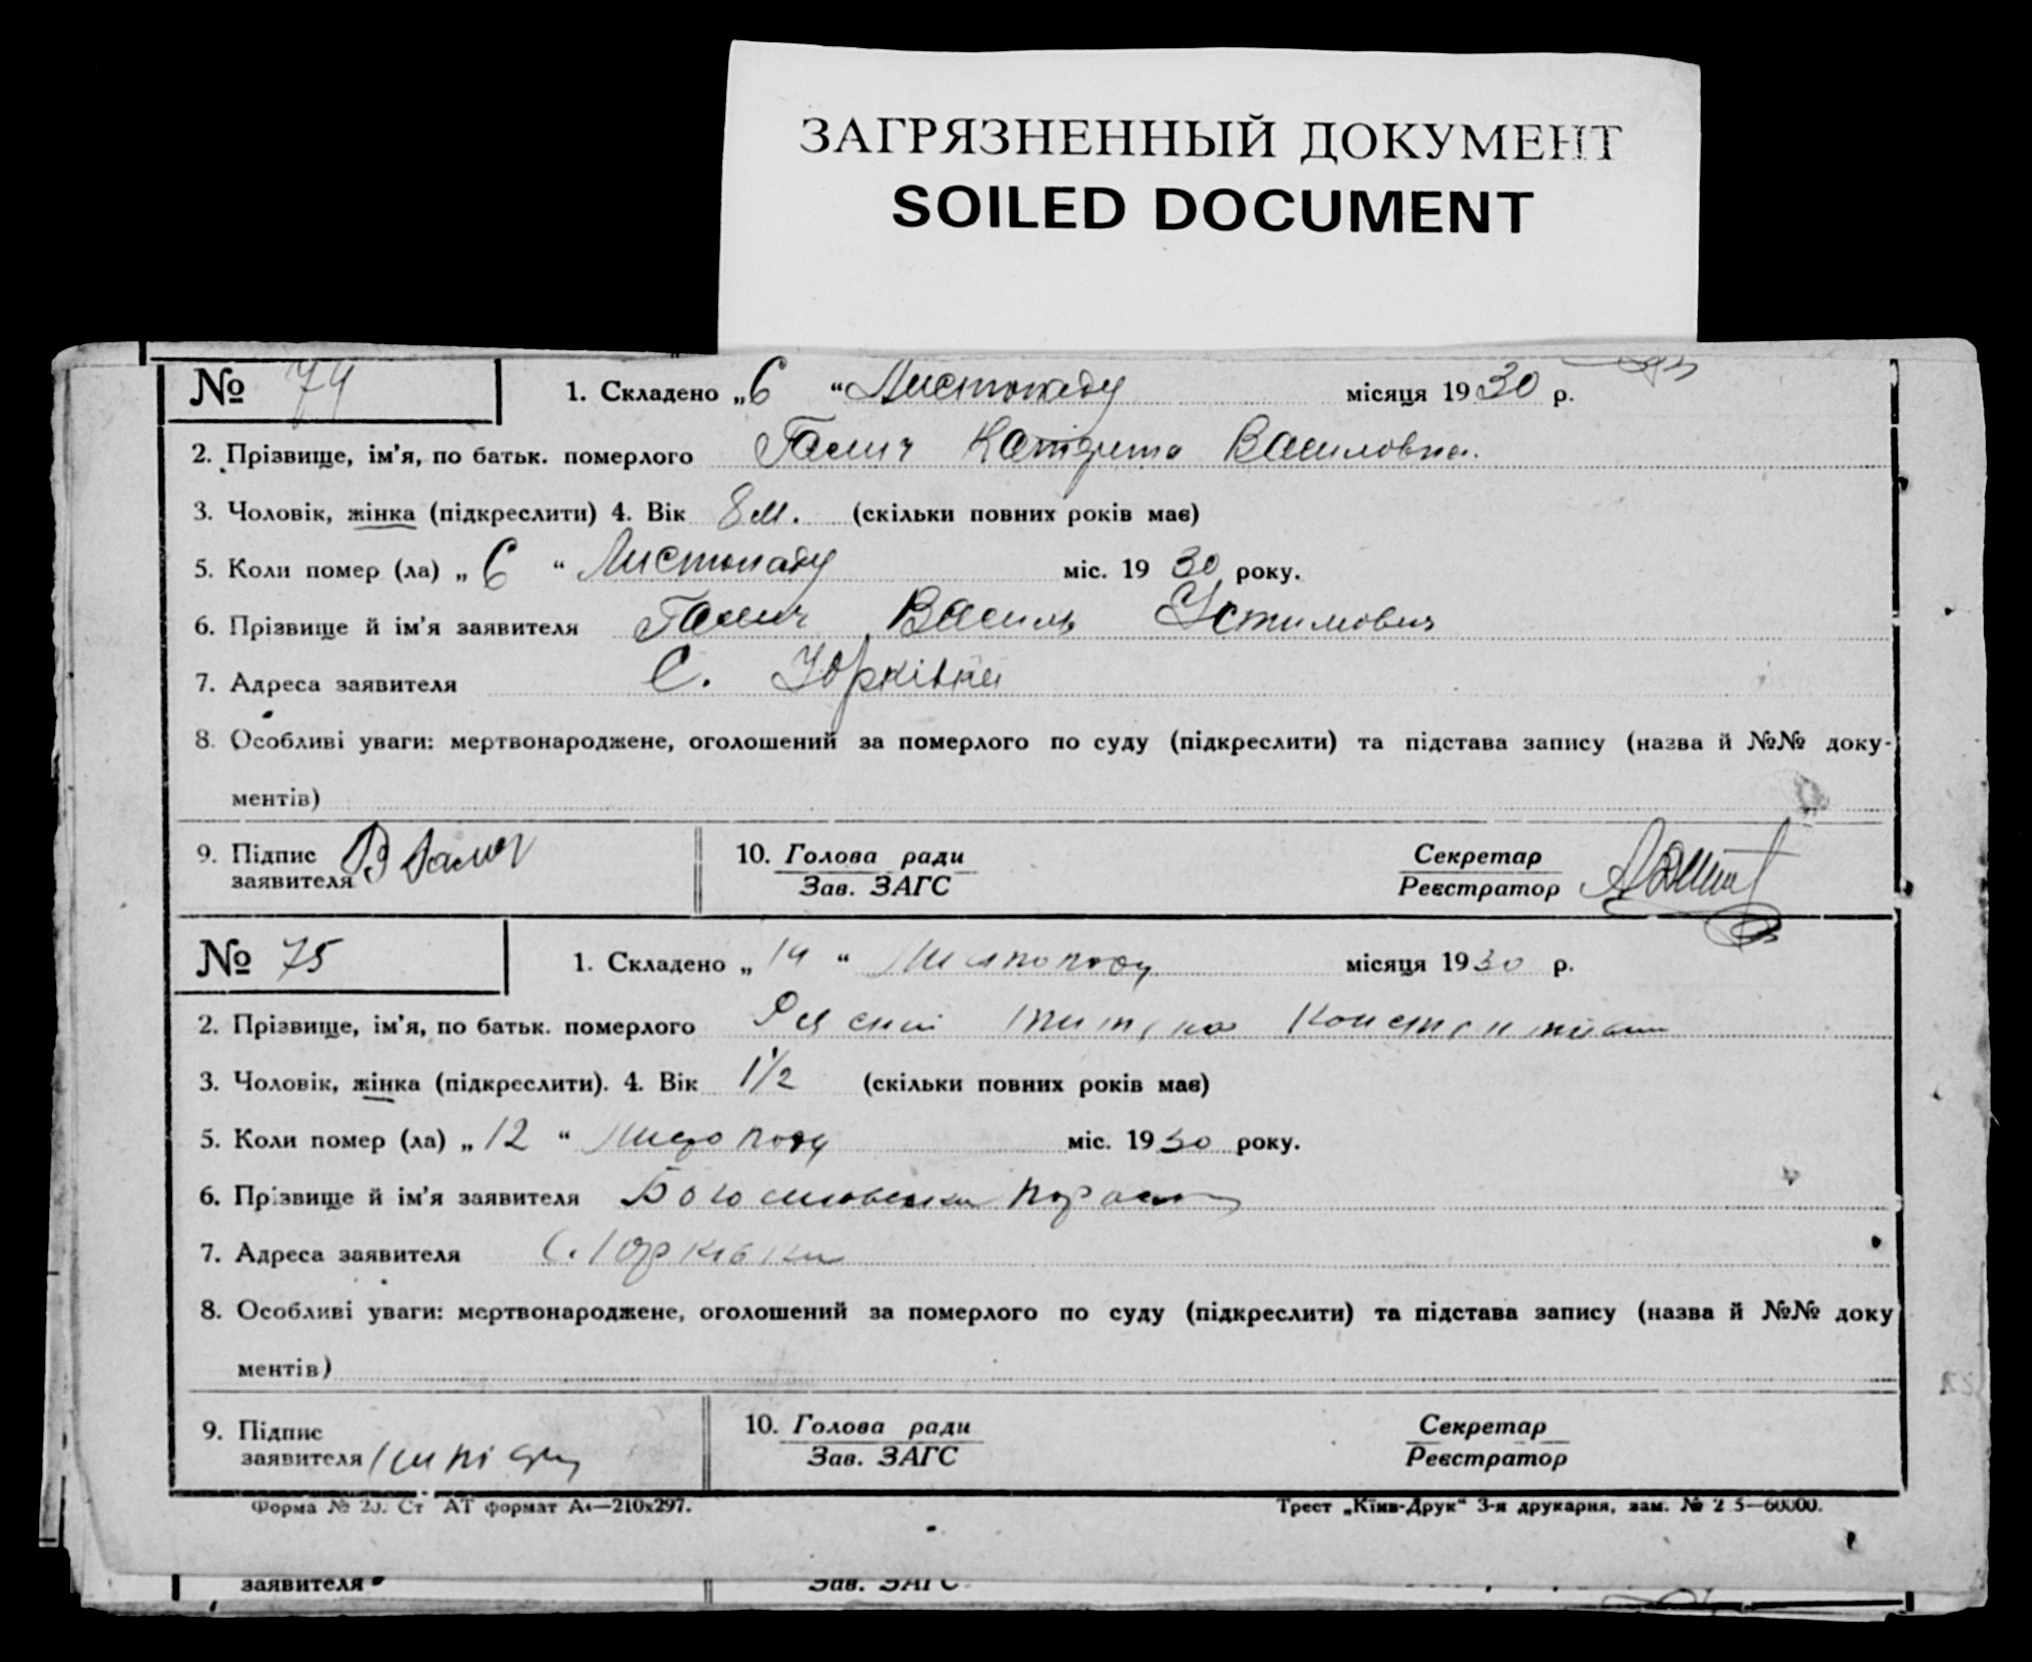 ЗАГРЯЗНЕННЫЙ ДОКУМЕНТ
SOILED DOCUMENT
№ 74 1. Складено „6“ Листопаду місяця 1930 р.
2. Прізвище, ім'я, по батьк. померлого Галич Василовна.
3. Чоловік, жінка (підкреслити) 4. Вік 8 м. (скільки повних років має)
5. Коли помер (ла) „6“ Листопаду міс. 1930 року.
6. Прізвище й ім'я заявителя Галич Василь Устимович
7. Адреса заявителя С. Юрківка
8. Особливі уваги: мертвонароджене, оголошений за померлого по суду (підкреслити) та підстава запису (назва й №№ доку-
ментів)
9. Підпис заявителя В Галич 10. Голова ради Секретар
Зав. ЗАГС Реєстратор
№ 75 1. Складено „14“ Листопаду місяця 1930 р.
2. Прізвище, ім'я, по батьк. померлого
3. Чоловік, жінка (підкреслити). 4. Вік 1 1/2 (скільки повних років має)
5. Коли помер (ла) „12“ Листопаду міс. 1930 року.
6. Прізвище й ім'я заявителя
7. Адреса заявителя С. Юрківка
8. Особливі уваги: мертвонароджене, оголошений за померлого по суду (підкреслити) та підстава запису (назва й №№ доку
ментів)
9. Підпис заявителя 10. Голова ради Секретар
Зав. ЗАГС Реєстратор
Форма № 20. Ст АТ формат А4—210х297. Трест „Київ-Друк“ 3-я друкарня, зам. №
заявителя Зав. ЗАГС